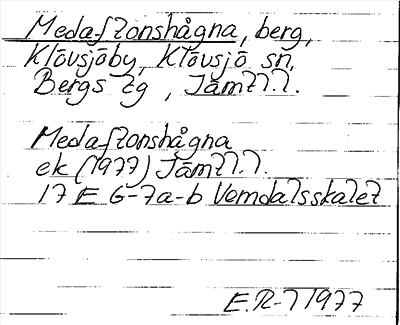 Medaftonshågna, berg,
Klövsjöby, Klövsjö sn,
Bergs tg, Jämtl.l.
Medaftonshågna
ek (1977) Jämtl.l.
17 E 6-7a-b Vemdalsskalet
E.R-7 1977